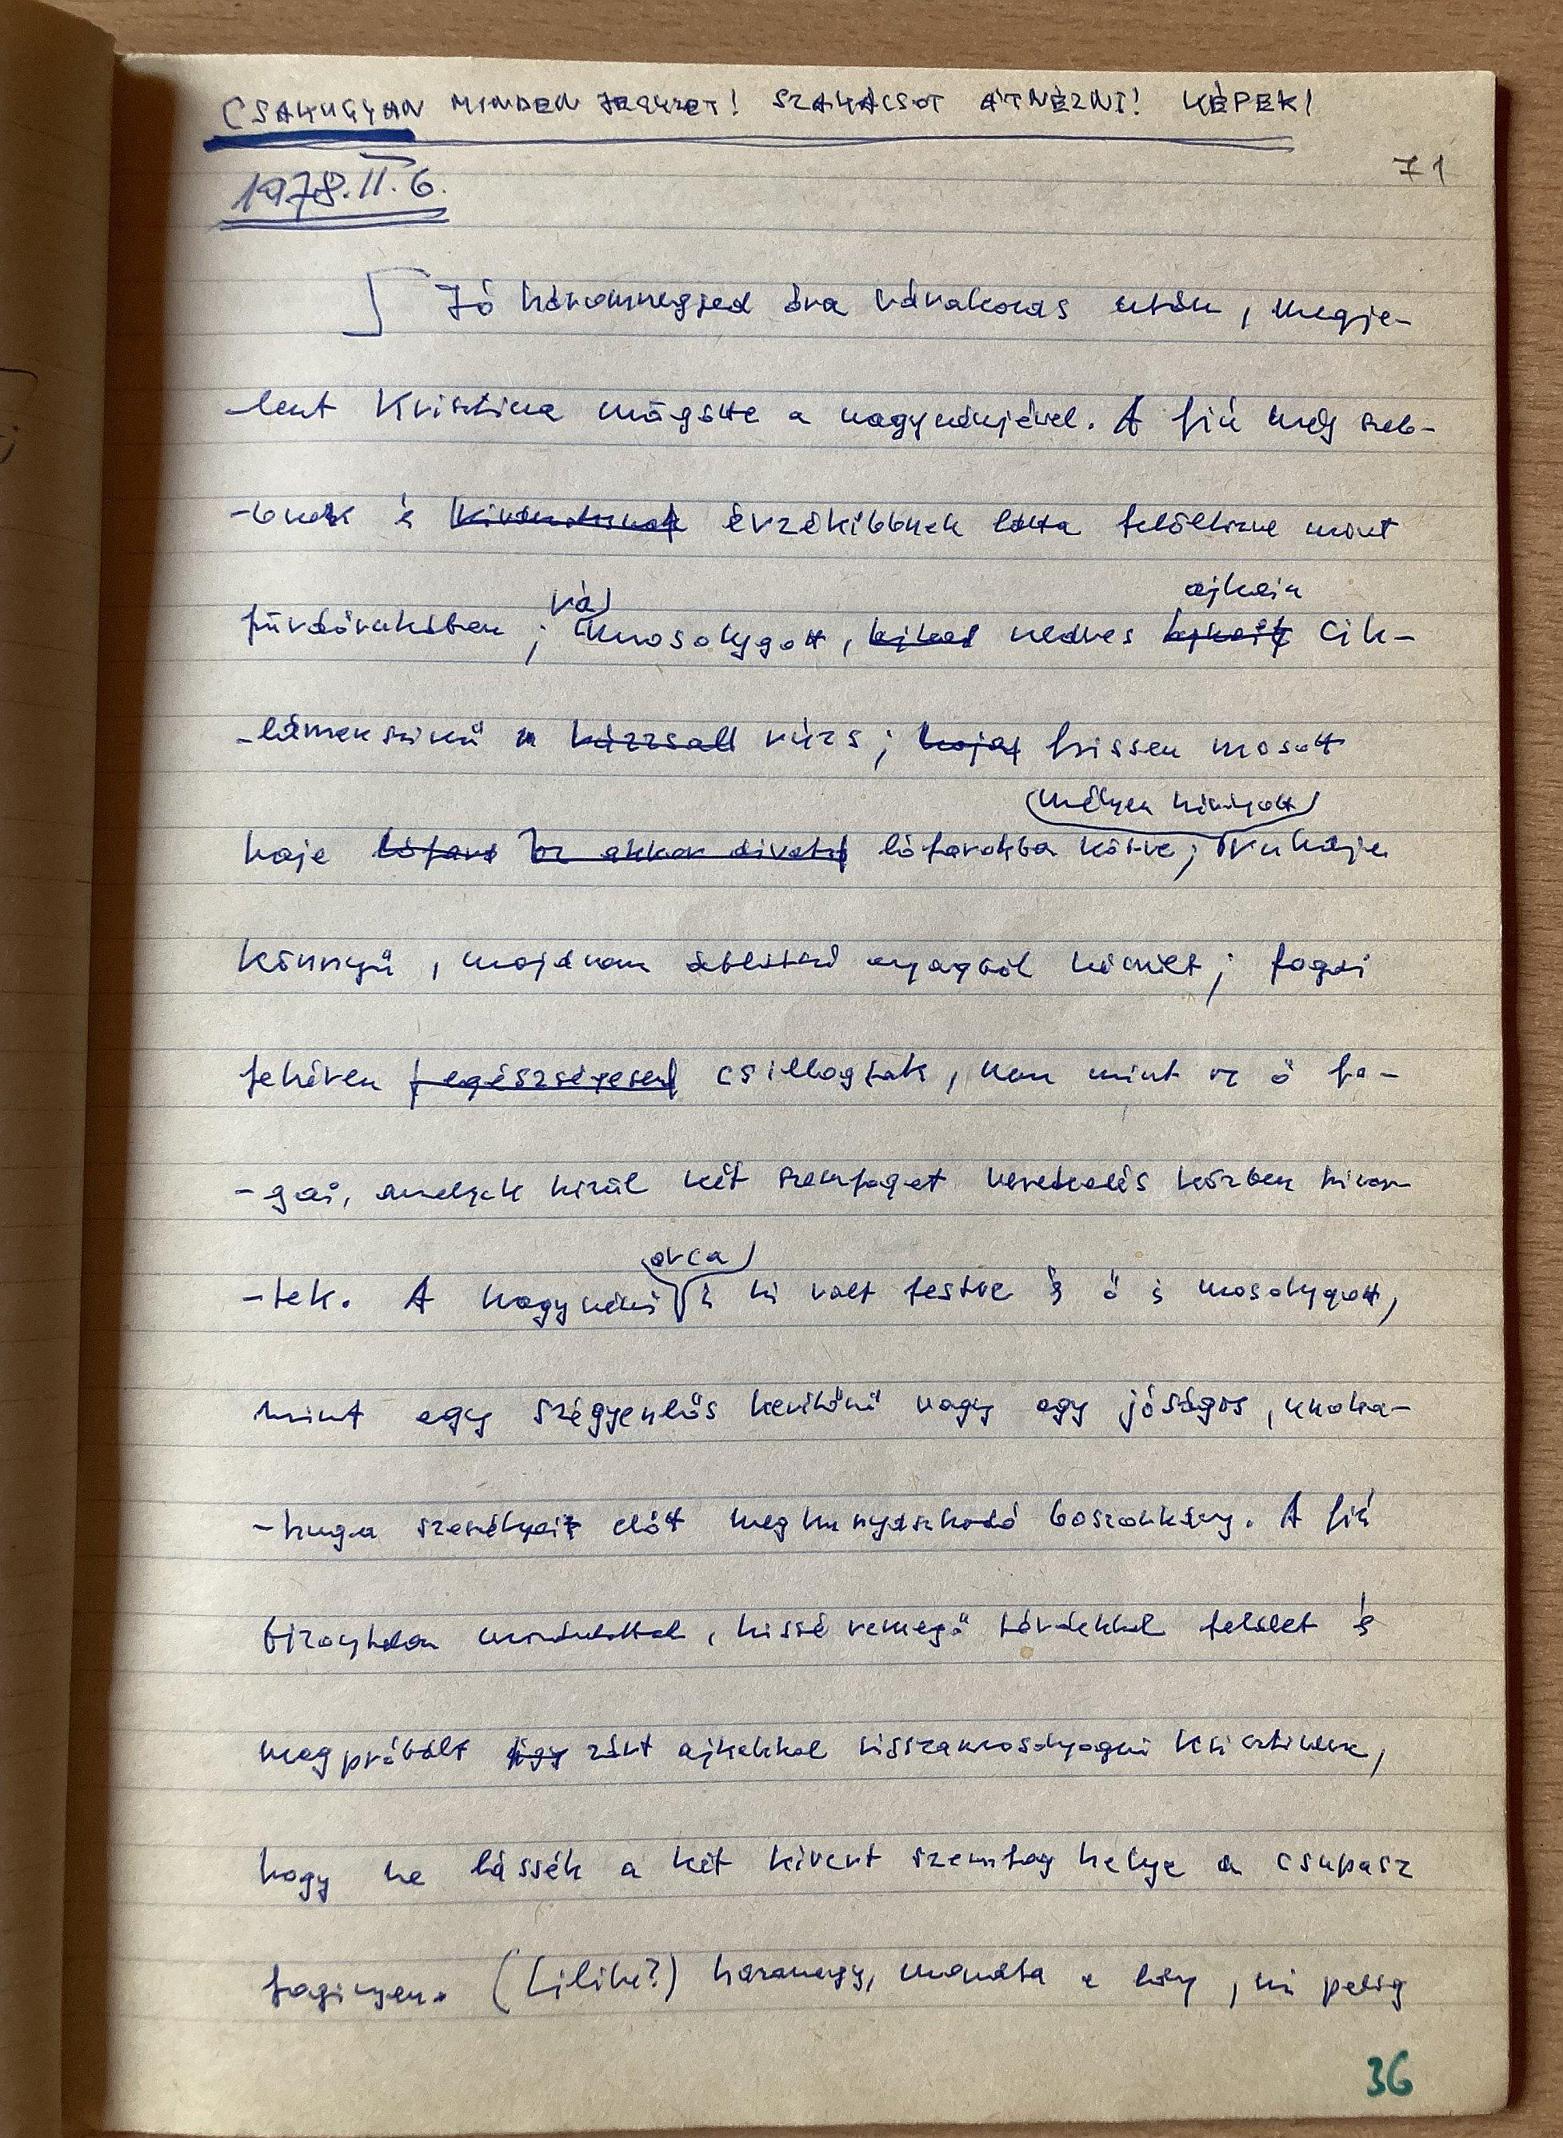 CSAKUGYAN MINDEN JEGYZET! SZAKÁCSOT ÁTNÉZNI! KÉPEK!
71
1978. II. 6.
Jó háromnegyed óra várakozás után, megje-
-lent Krisztina mögötte a nagynénjével. A fiú még szeb-
-bnek és érzékibbnek látta felöltözve mint
vá
fürdőruhában; mosolygott, nedves
ajkain
cik-
-lámenszínű rúzs; hajat frissen mosott
(mélyen kivágott)
haja lófars az akkor divatos lófarokba kötve; ruhája
könnyű, majdnem áttetsző anyagból készült; fogai
fehéren egészségesen csillogtak, nem mint az ő fo-
-gai, amelyek közül két szemfogat verekedés közben kiver-
orca
-tek. A nagynéni is ki volt festve és ő is mosolygott,
mint egy szégyenlős kerítőnő vagy egy jóságos, unoka-
-huga szemérmes előtt meghunyászkodó boszorkány. A fiú
bizonytalan mozdulattal, kissé remegő térdekkel felállt és
megpróbált úgy zárt ajkakkal visszamosolyogni Krisztinára,
hogy ne lássék a két kivert szemfog helye a csupasz
fogínyen. (Lilik?) haranegy, mondta a lány, mi pedig
36